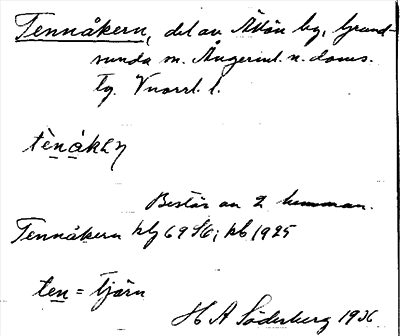 Tennåkern, del av Ällön by, Grund-
sunda sn. Ångerml. n. doms.
tg. Vnorrl. l.
tènåkɐɳ
Består av 2 hemman.
Tennåkern hlj 69 S6; kb 1925
ten = tjärn
H A Söderberg 1936